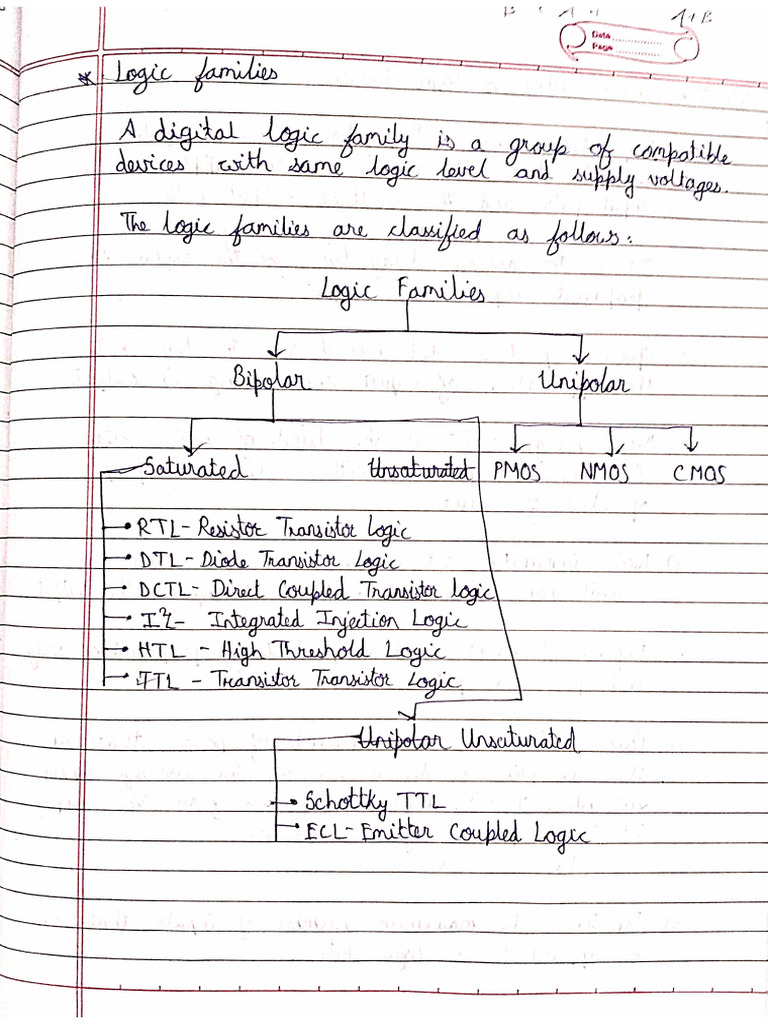 Date
Page
* Logic families
A digital logic family is a group of compatible
devices with same logic level and supply voltages.
The logic families are classified as follows:
Logic Families
Bipolar Unipolar
Saturated Unsaturated PMOS NMOS CMOS
RTL - Resistor Transistor Logic
DTL - Diode Transistor Logic
DCTL - Direct Coupled Transistor logic
I²L - Integrated Injection Logic
HTL - High Threshold Logic
TTL - Transistor Transistor Logic
Unipolar Unsaturated
Schottky TTL
ECL - Emitter Coupled Logic